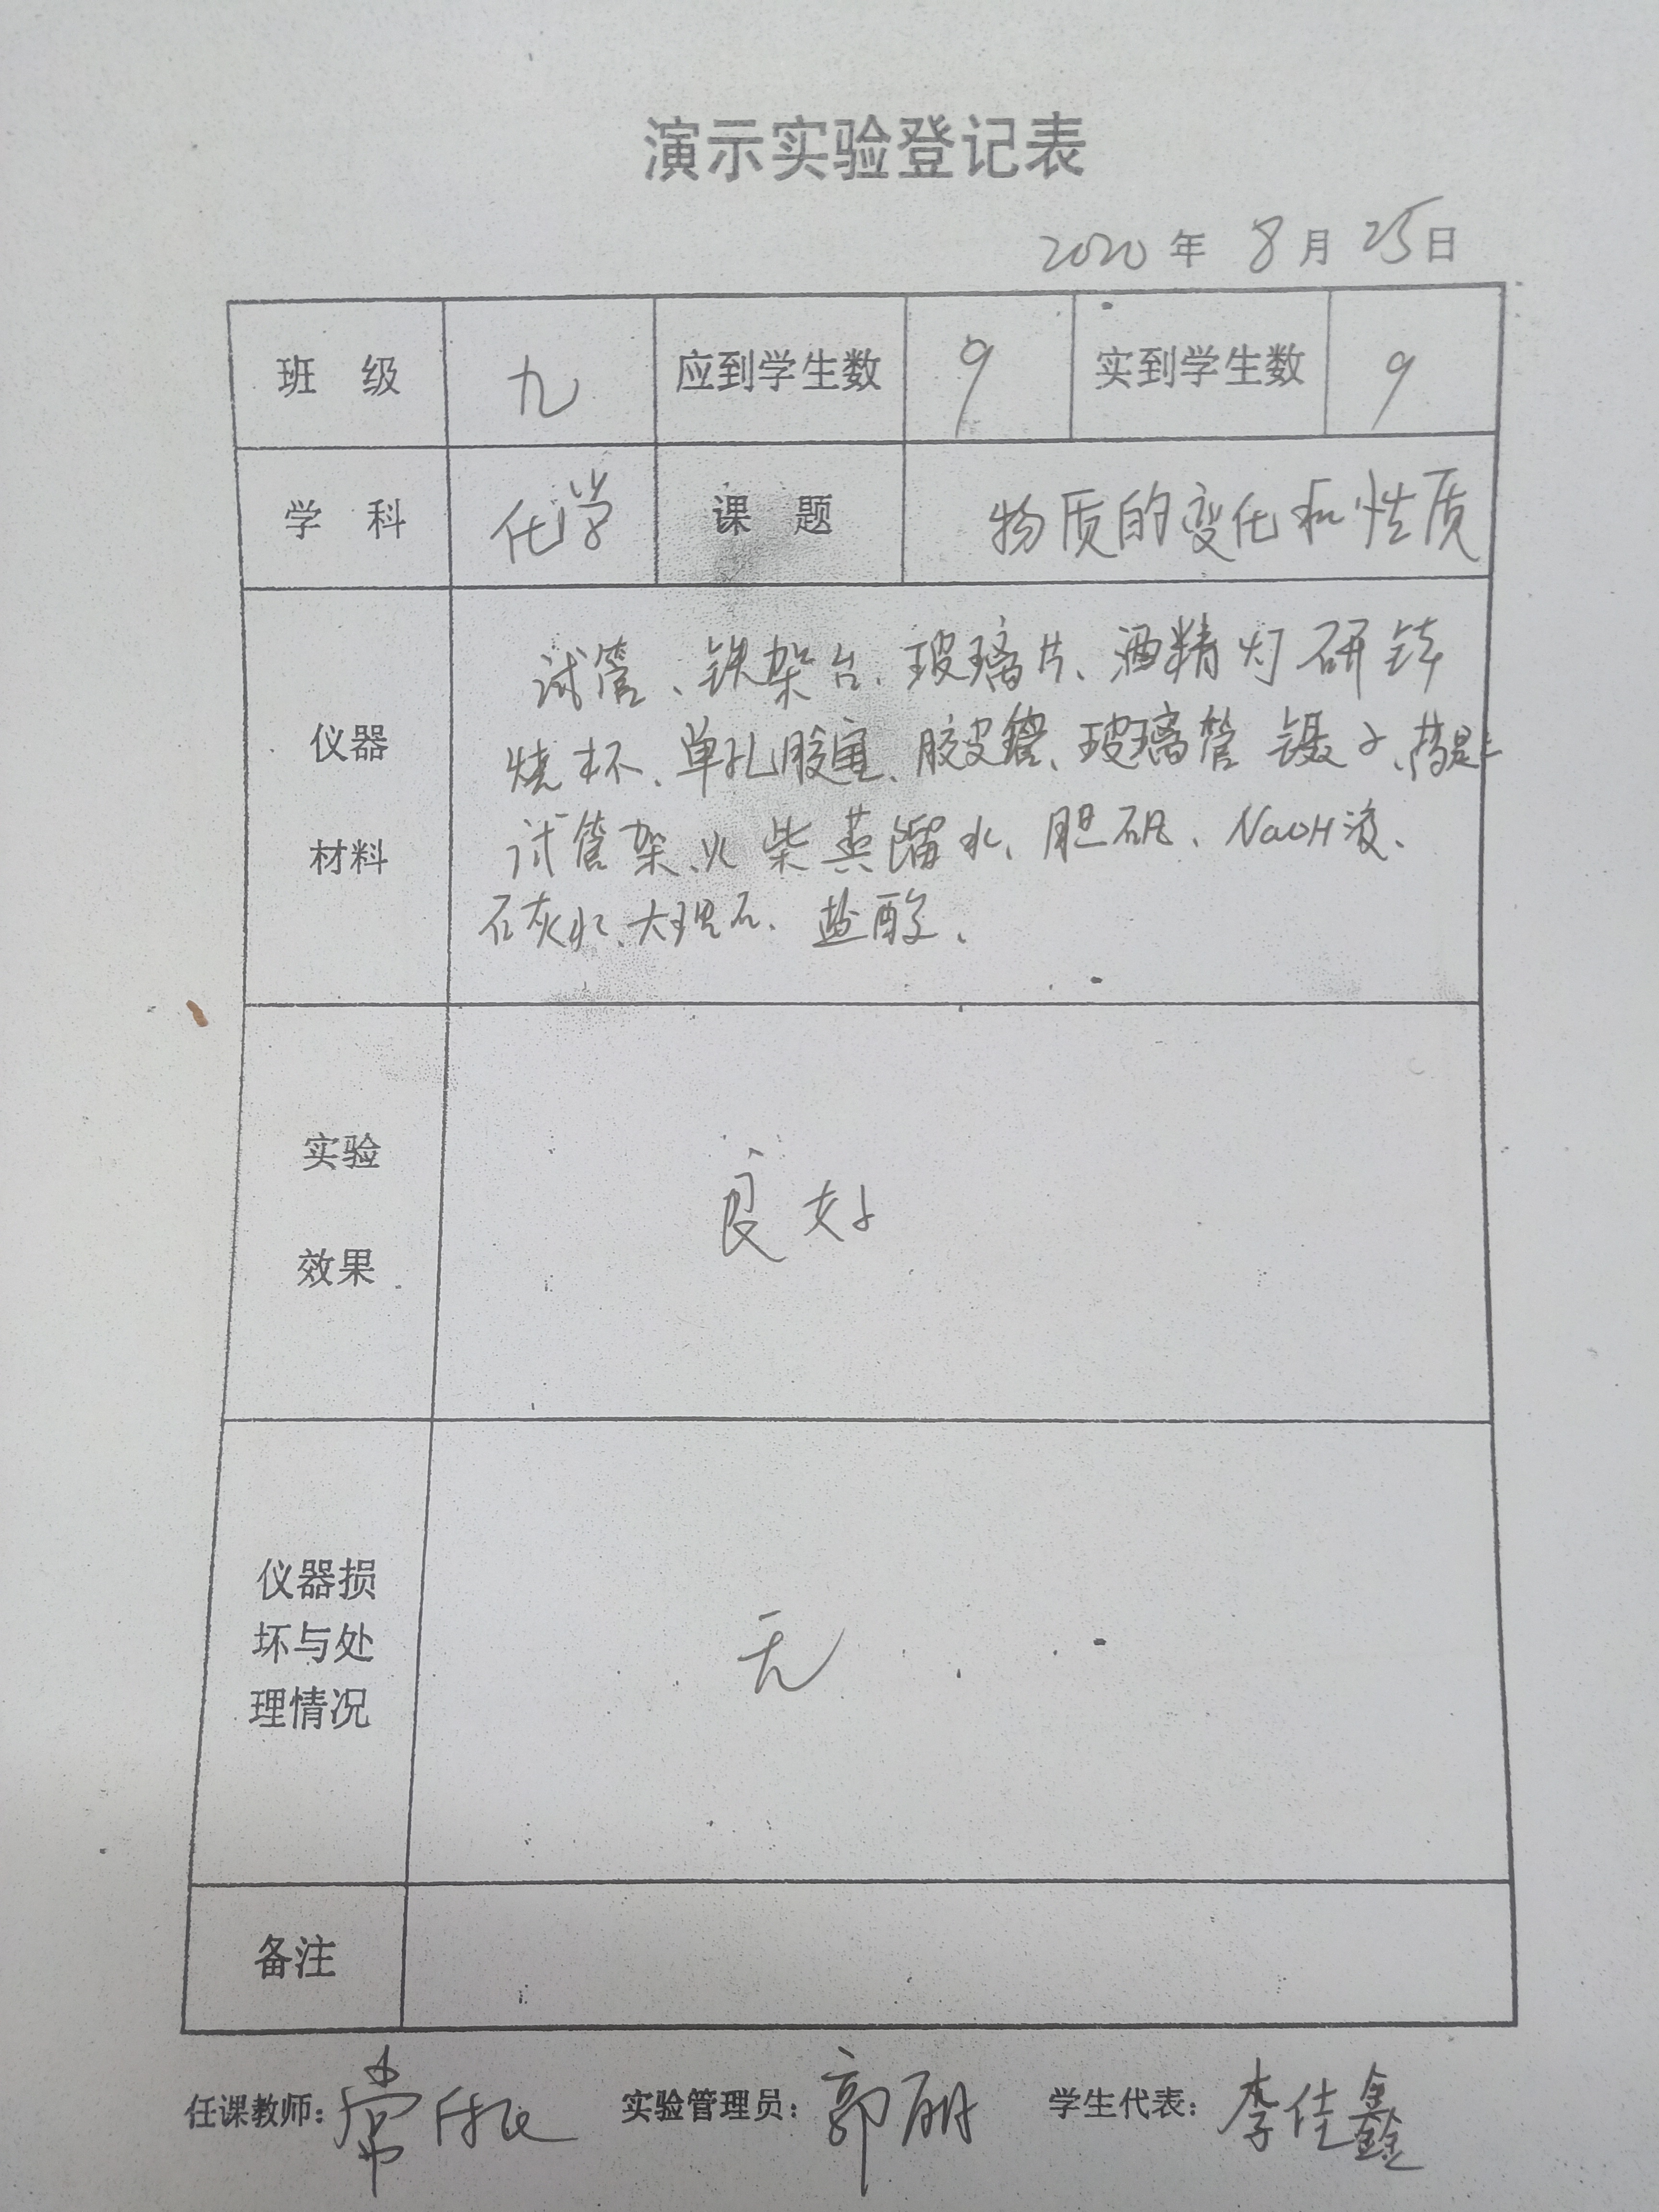 演示实验登记表
2020年 8月 25日
班 级 九 应到学生数 9 实到学生数 9
学 科 化学 课 题 物质的变化和性质
仪器
材料
试管、铁架台、玻璃片、酒精灯 研钵
烧杯、单孔胶塞、胶皮管、玻璃管 镊子、药匙
试管架、火柴 蒸馏水、胆矾、NaOH液、
石灰水、大理石、盐酸、
实验
效果
良好
仪器损
坏与处
理情况
无
备注
任课教师：常 实验管理员：郭丽 学生代表：李佳鑫